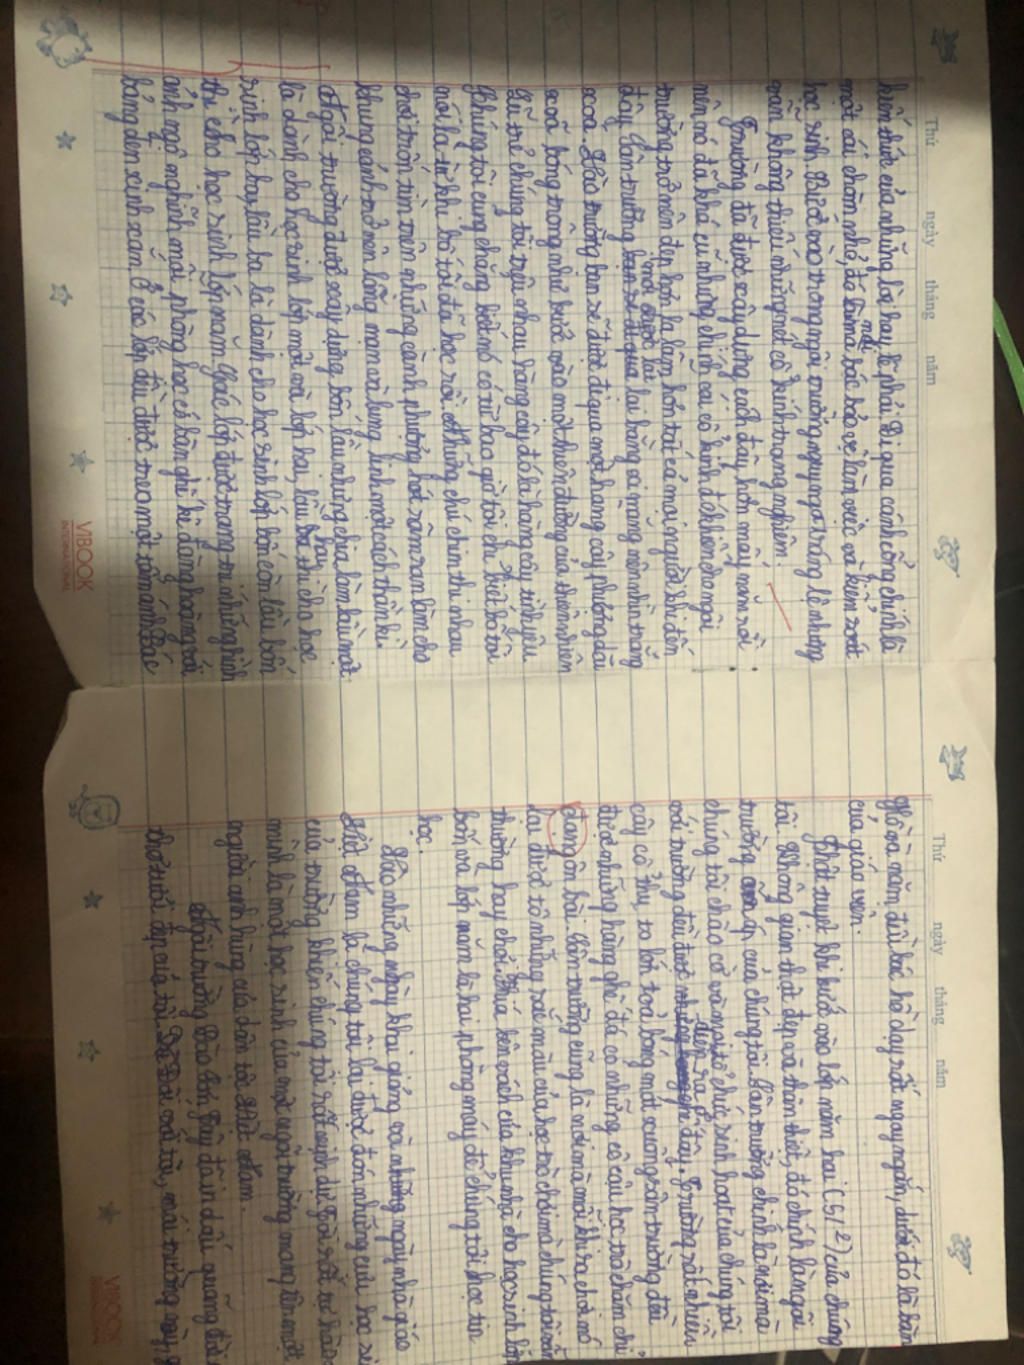 Thứ ngày tháng năm
kiến thức của những lời hay, lẽ phải. Đi qua cánh cổng chính là
một cái chòm nhỏ, đó là nơi mà bác bảo vệ làm việc và kiểm soát
học sinh. Bước vào trong ngôi trường nguy nga, tráng lệ nhưng
vẫn không thiếu những nét cổ kính trang nghiêm.
Trường đã được xây dựng cách đây hơn mấy năm rồi
nên nó đã khá cũ nhưng chính cái cổ kính đó khiến cho ngôi
trường trở nên đẹp hơn, lạ lẫm hơn tất cả mọi người khi đến
đây. Sân trường lại bằng xi măng nên nhìn trắng
xoá. Vào trường bạn sẽ được đi qua một hàng cây phượng dài
xoã bóng trông như bước vào một thiên đường của thiên nhiên
lũ trẻ chúng tôi gọi nhau hàng cây đó là hàng cây tình yêu
Chúng tôi cũng chẳng biết nó có từ bao giờ tôi chỉ kể bố tôi
nói là từ khi bố tôi đã học rồi. Những chú chim thi nhau
chơi trốn tìm trên những cành phượng, hót râm ran làm cho
khung cảnh trở nên lãng mạn và lung linh một cách thần kì.
Ngôi trường được xây dựng bốn lầu nhưng chia làm lầu một
là dành cho học sinh lớp một và lớp hai, lầu hai thì cho học
sinh lớp ba, lầu ba là dành cho học sinh lớp bốn còn lầu bốn
thì cho học sinh lớp năm. Các lớp được trang trí những hình
ảnh ngộ nghĩnh mỗi phòng học có bàn ghế kê đàng hoàng với
bảng đen xinh xắn. Ở các lớp đều được treo một tấm ảnh Bác
VIBOOK
INTERNATIONAL
Thứ ngày tháng năm
Hồ và năm điều bác hồ dạy rất ngay ngắn, dưới đó là bàn
của giáo viên.
Thật tuyệt khi bước vào lớp năm hai (5/2) của chúng
tôi. Không gian thật đẹp và thân thiết, đó chính là ngôi
trường ấm áp của chúng tôi. Sân trường chính là nơi mà
chúng tôi chào cờ và mọi tổ chức sinh hoạt của chúng tôi
với trường đều được diễn ra ở đây. Trường rất nhiều
cây cổ thụ to lớn toả bóng mát xuống sân trường đều
được những hàng ghế đá có những cô cậu học trò chăm chỉ
đang ôn bài. Sân trường cũng là nơi mà mỗi khi ra chơi nó
lại được tô những sắc màu của học trò chơi mà chúng tôi
thường hay chơi. Phía bên vách của khu nhà cho học sinh lớp
bốn và lớp năm là hai phòng máy để chúng tôi học tin
học.
Vào những ngày khai giảng và những ngày nhà giáo
Việt Nam là chúng tôi lại được đón những cựu học si
của trường khiến chúng tôi rất vinh dự. Tôi rất tự hào
mình là một học sinh của một ngôi trường mang tên một
người anh hùng của dân tộc Việt Nam.
Ngôi trường Đào Sơn Tây đã in dấu quãng đời
thơ tuổi đẹp của tôi. Đối với tôi, mái trường này,
VIBOOK